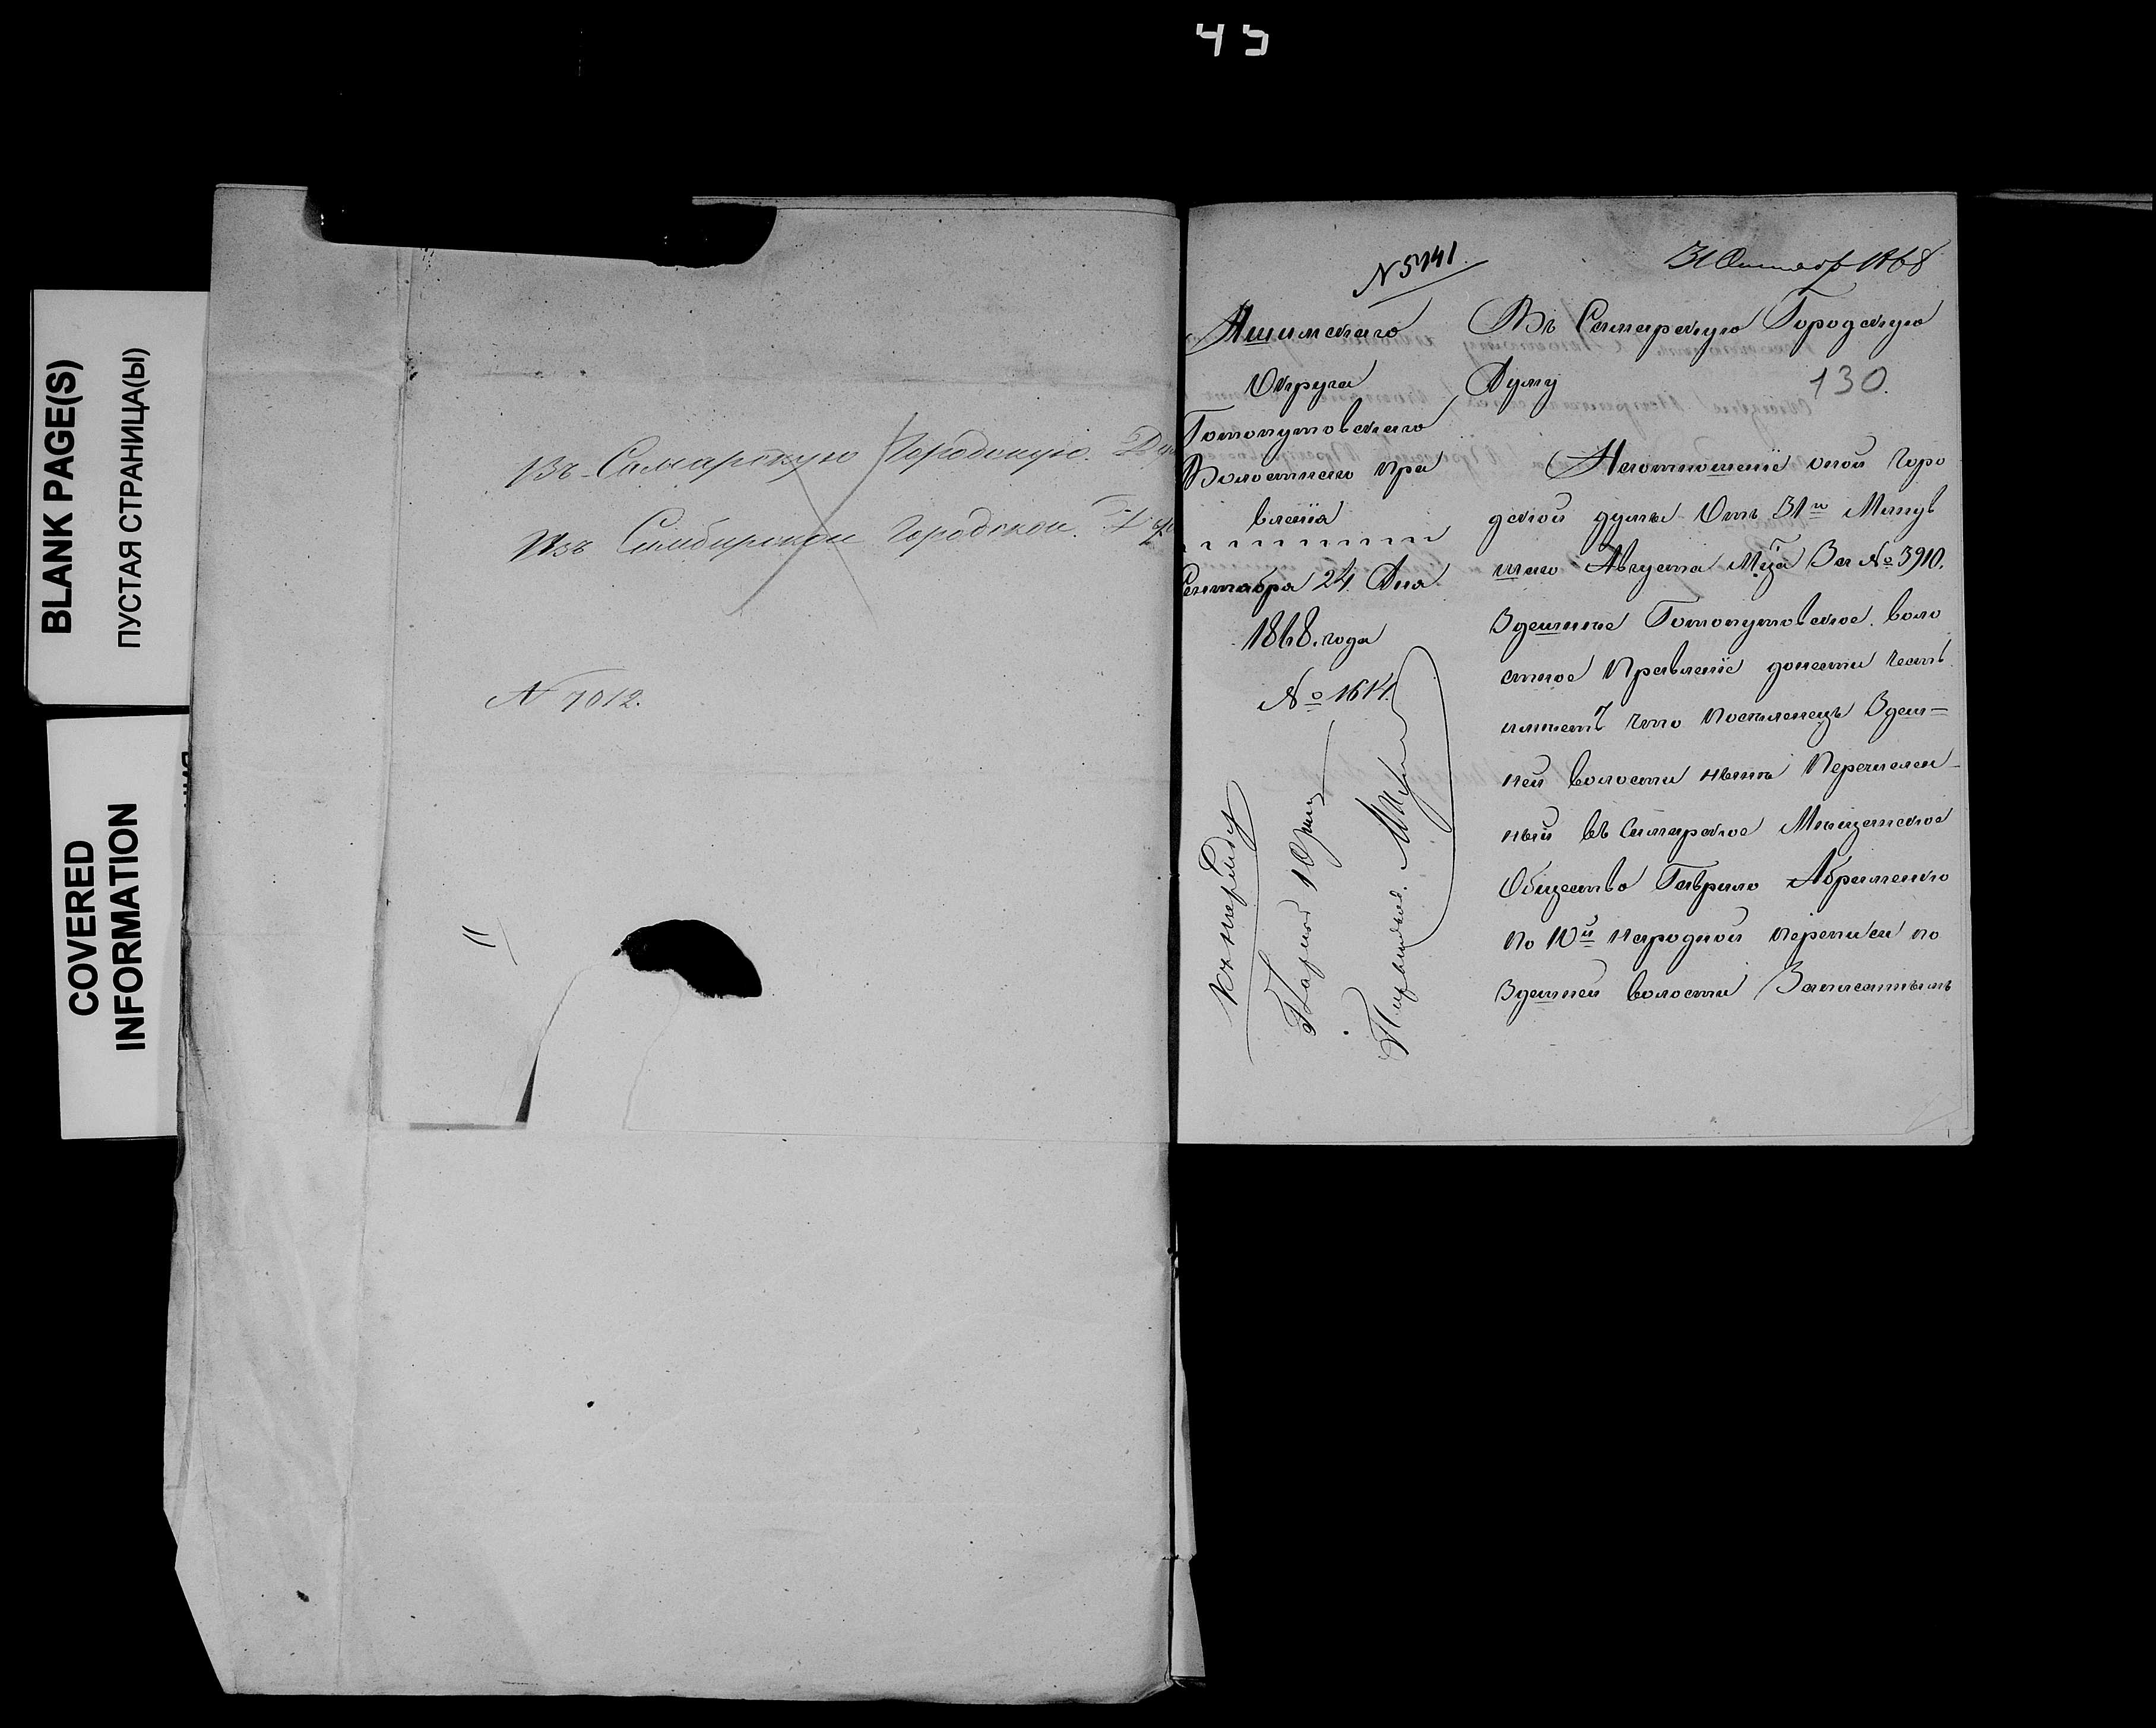 45
BLANK PAGE(S)
ПУСТАЯ СТРАНИЦА(Ы)
COVERED
INFORMATION
Въ Самарскую Городскую Ду
Изъ Симбирской Городской Ду
N 7012.
N 5741.
31 Октября 1868
130.
Ишимскаго
Округа
Готопутовскаго
Волостнаго Пра
вленiя
Сентабра 24. Дня
1868. года
№ 1614.
Въ Самарскую Городскую
Думу
Наотношенiе оной Горо
дской думы Отъ 31го Минув
шаго Августа М҃ца За № 3910.
Здешнѣе Готопутовское воло
стное Правленiе донести чест
что Поселенецъ Здеш=
ней волости нынѣ Перечислен
ный въ Самарское Мѣщанское
Общество Гаврило Абраменко
по 10й народной переписи по
Здешней волости Записанымъ